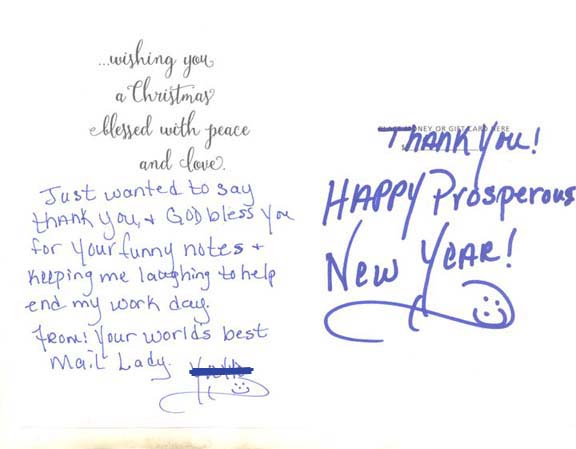 ...wishing you
a Christmas
blessed with peace
and love.
Just wanted to say
thank you, + GOD bless you
for your funny notes +
keeping me laughing to help
end my work day.
From: Your world's best
Mail Lady.
PLACE MONEY OR GIFT CARD HERE
THANK YOU!
HAPPY Prosperous
New YEAR!